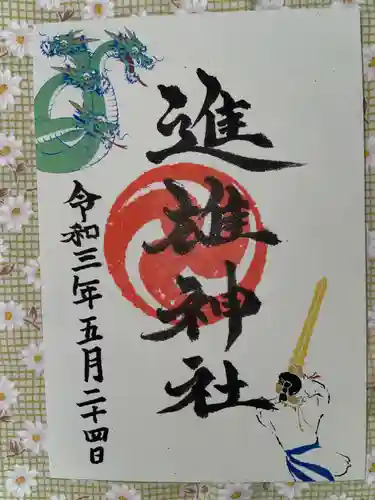 進雄神社
令和三年五月二十四日